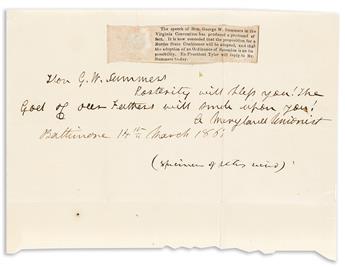 The speech of Hon. George W. Summers in the
Virginia Convention has produced a profound ef-
fect. It is now conceded that the proposition for a
Border State Conference will be adopted, and that
the adoption of an Ordinance of Secession is an im-
possibility. Ex-President Tyler will reply to Mr.
Summers to-day.
Hon G. W. Summers
Posterity will bless you! The
God of our Fathers will smile upon you!
A Maryland Unionist
Baltimore 14th March 1861
(specimen of